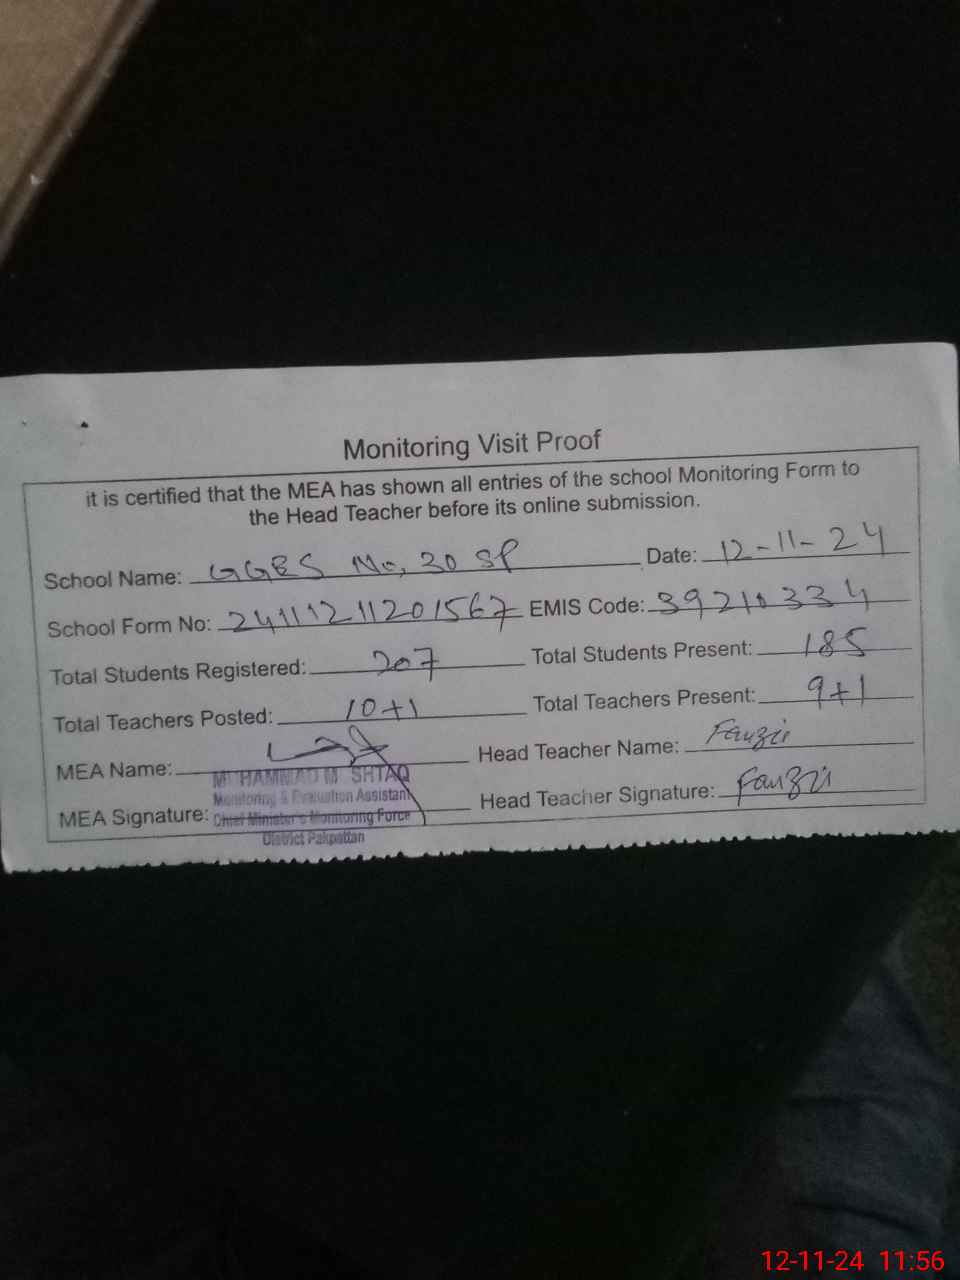 Monitoring Visit Proof
it is certified that the MEA has shown all entries of the school Monitoring Form to
the Head Teacher before its online submission.
School Name: GGES No, 30 SP Date: 12-11-24
School Form No: 24111211201567 EMIS Code: 39210334
Total Students Registered: 207 Total Students Present: 185
Total Teachers Posted: 10+1 Total Teachers Present: 9+1
MEA Name: Head Teacher Name: Fauzia
MUHAMMAD MUSHTAQ
Monitoring & Evaluation Assistant
MEA Signature: Head Teacher Signature: Fauzia
Chief Minister's Monitoring Force
District Pakpattan
12-11-24 11:56